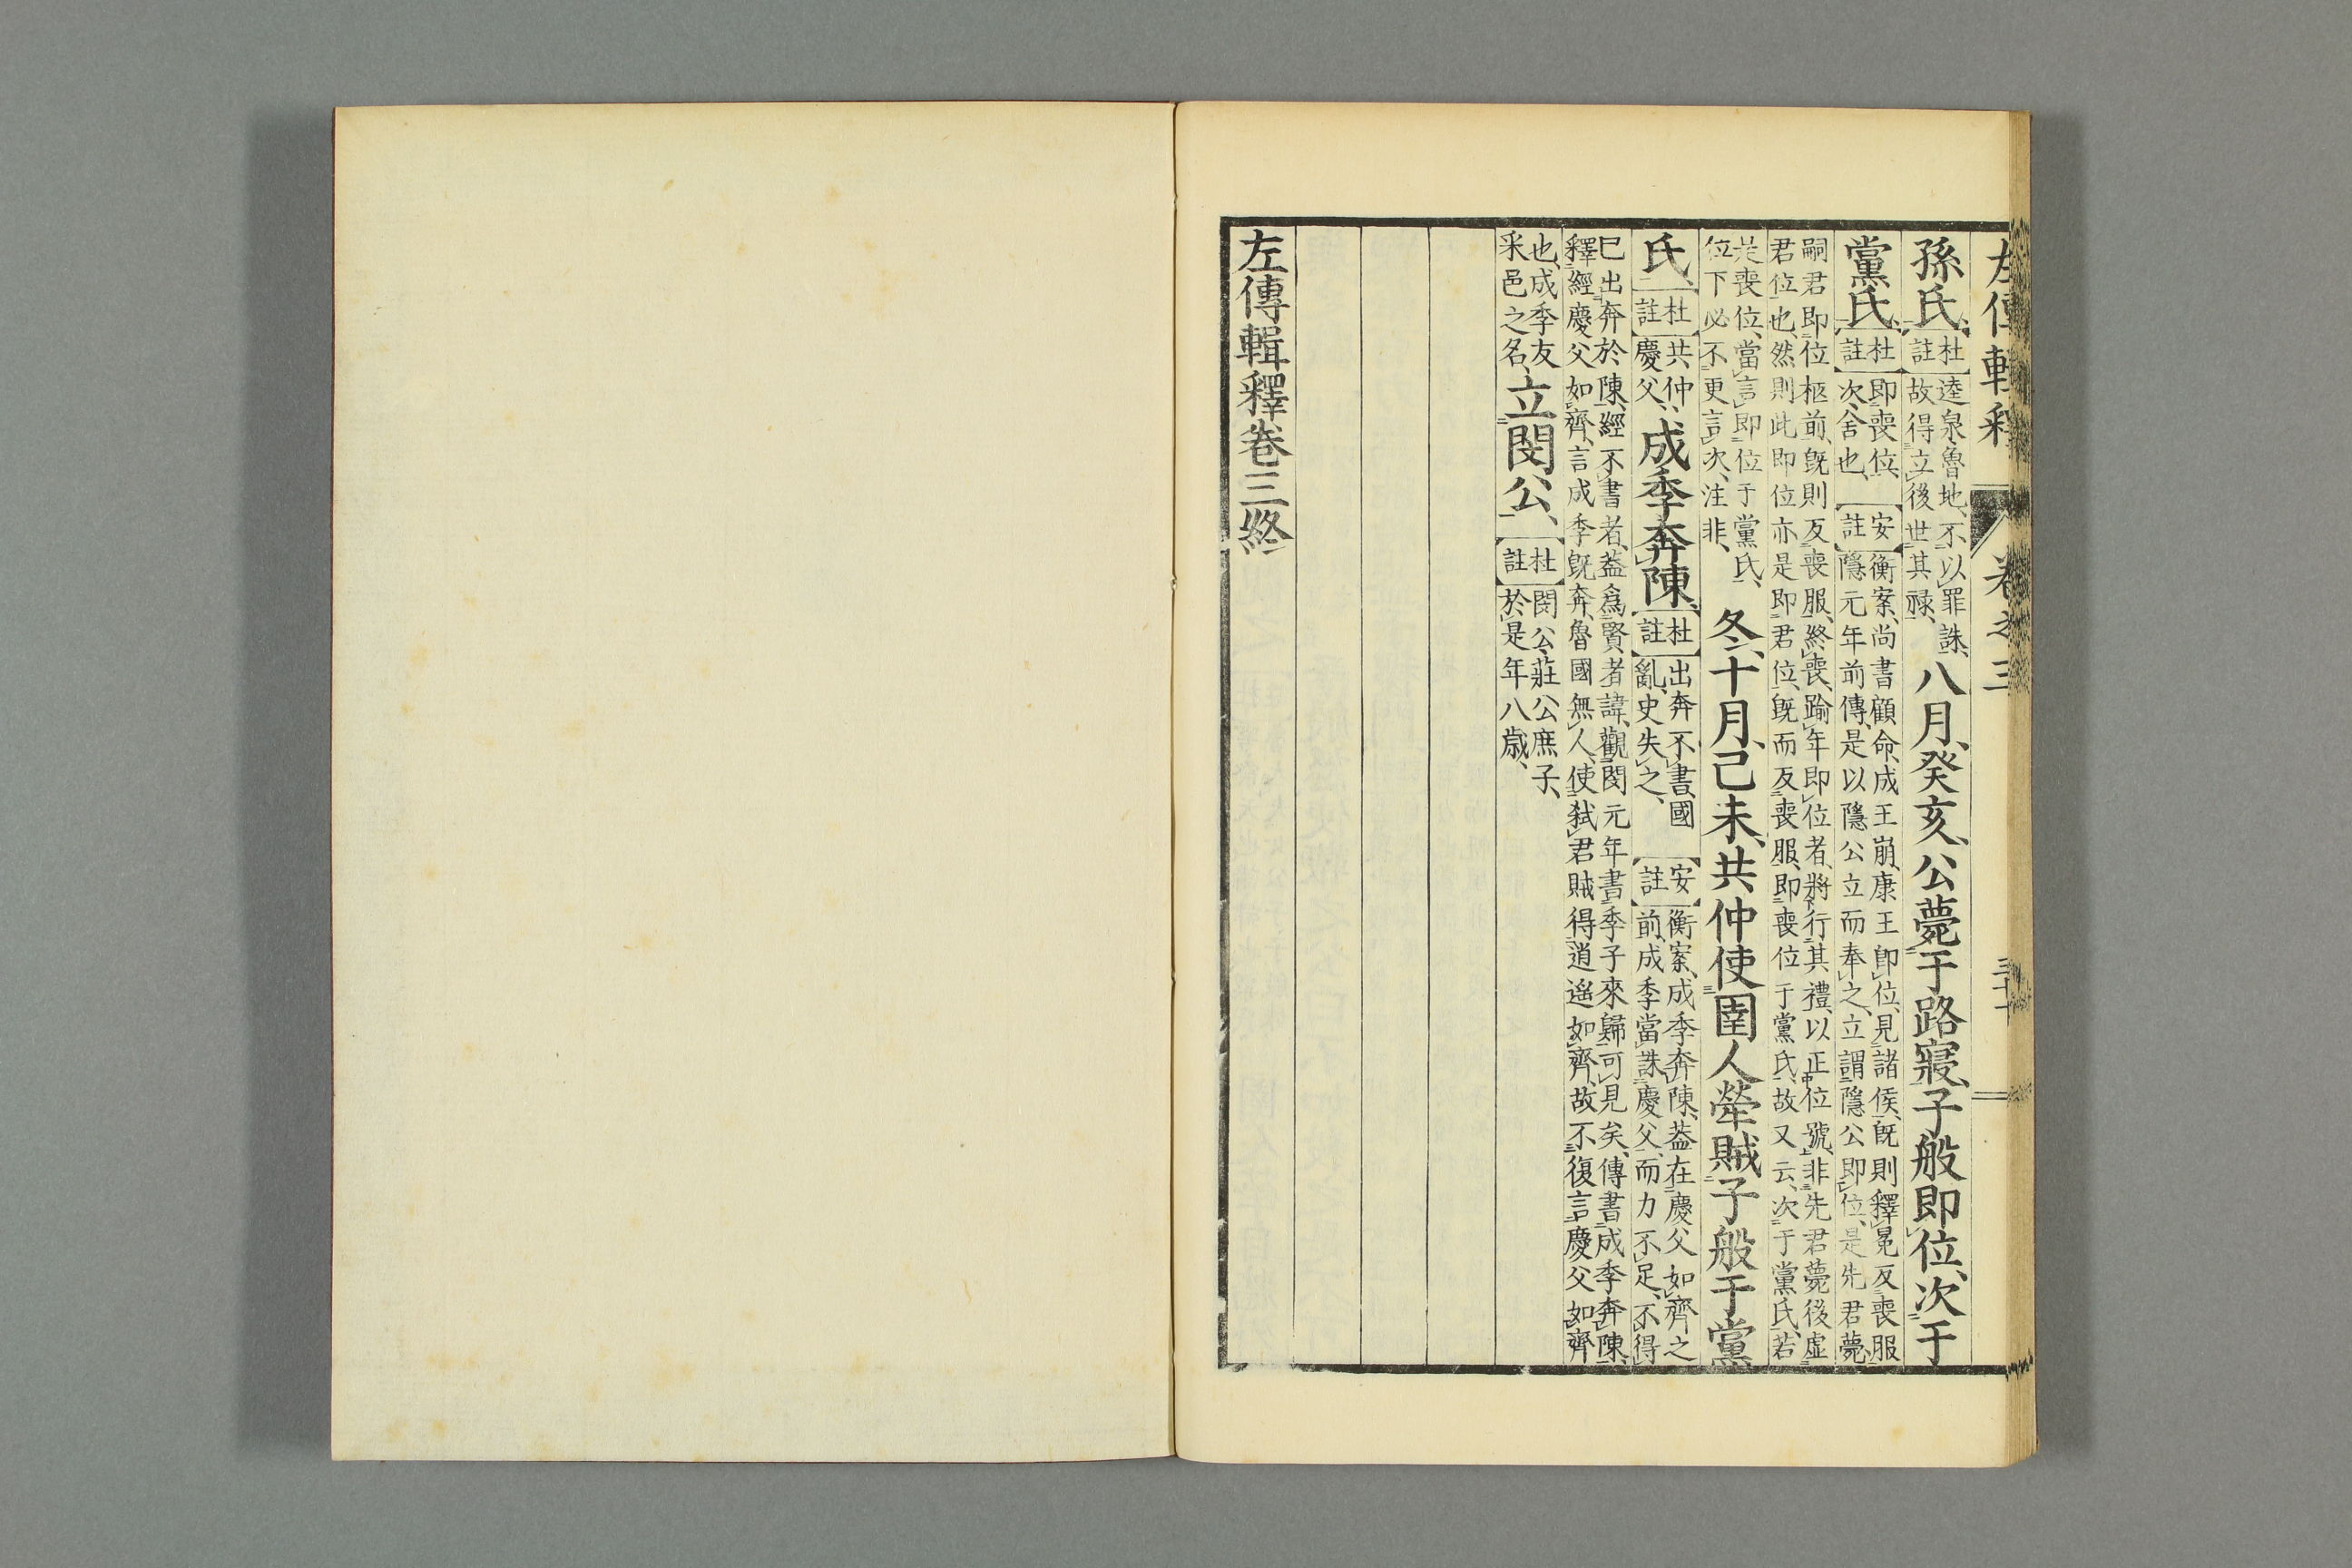 左傳輯釋 卷之三 三十一
孫氏、杜註逵泉魯地、不以罪誅、故得立後世其祿、八月、癸亥、公薨于路寢、子般即位、次于
黨氏、杜註即喪位、次舍也、安註衡案、尚書顧命、成王崩、康王卽位、見諸侯、旣則釋冕反喪服、隱元年前傳、是以隱公立而奉之、立謂隱公即位、是先君薨
嗣君即位柩前、旣則反喪服、終喪、踰年即位者、將行其禮、以正位號、非先君薨後虛
君位也、然則此即位亦是即君位、旣而反喪服、即喪位于黨氏、故又云、次于黨氏、若
是喪位、當言即位于黨氏、位下必不更言次、注非、冬、十月、己未、共仲使圉人犖賊子般于黨
氏、杜註共仲、慶父、成季奔陳、杜註出奔不書、國亂、史失之、安註衡案、成季奔陳、葢在慶父如齊之前、成季當誅慶父、而力不足、不得
已出奔於陳、經不書者、葢爲賢者諱、觀閔元年書季子來歸可見矣、傳書成季奔陳、
釋經慶父如齊、言成季旣奔、魯國無人、使弑君賊得逍遙如齊、故不復言慶父如齊
也、成季友采邑之名、立閔公、杜註閔公、莊公庶子、於是年八歲、
左傳輯釋卷三終